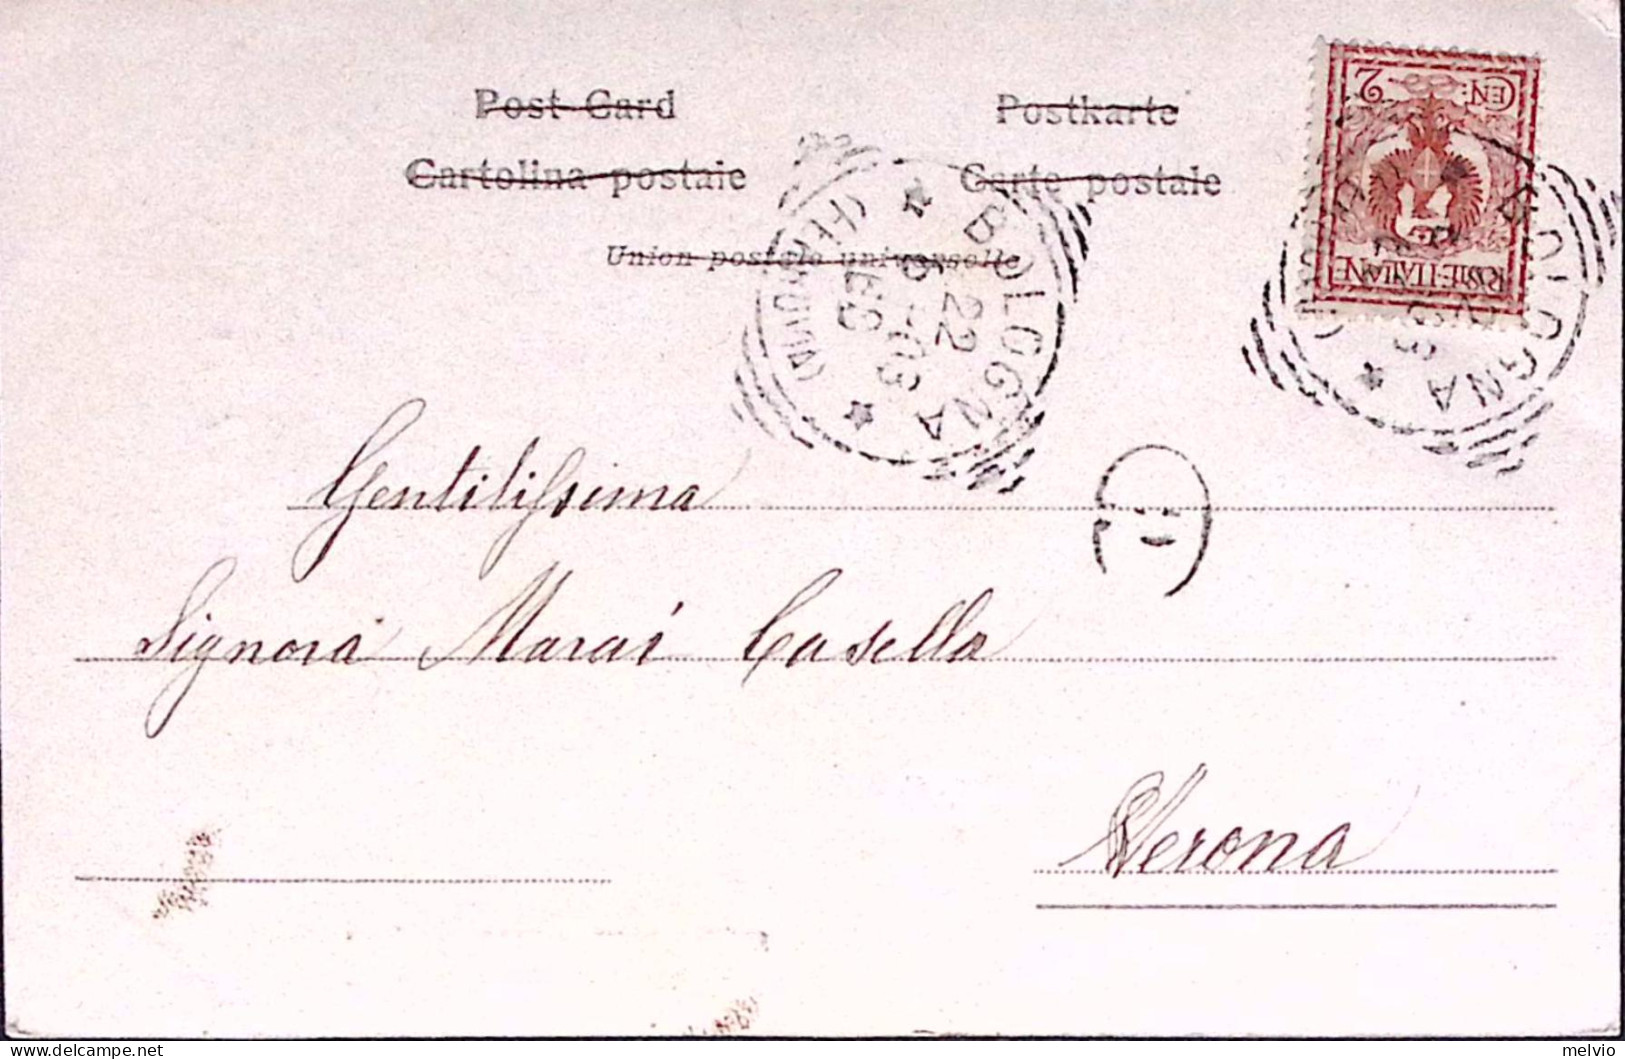 Post Card
Postkarte
Cartolina postale
Carte postale
Union postale universelle
CEN: 2
POSTE ITALIANE
BOLOGNA
(FERROVIA)
22
BOLOGNA
Gentilissima
Signora Marai Casella
Verona
melvio
delcampe.net